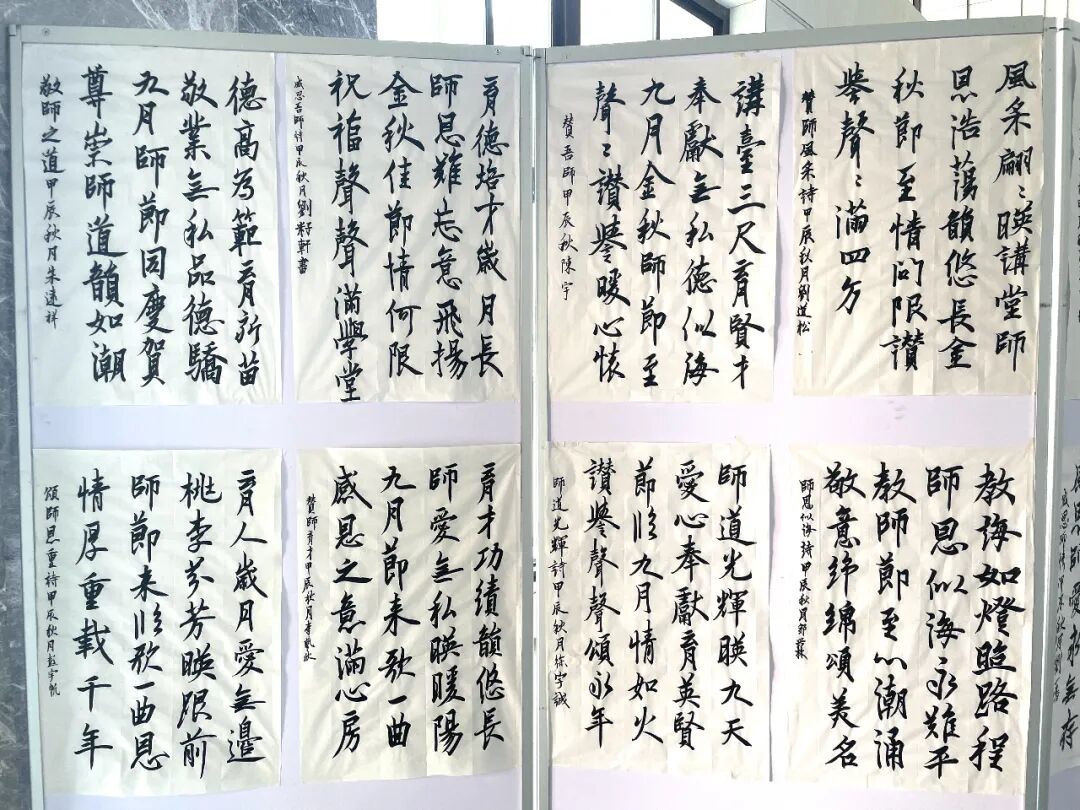 風采翩〻暎講堂師
恩浩蕩韻悠長金
秋節至情問限讚
譽聲〻滿四方
贊師風采詩甲辰秋月劉道松
講臺三尺育賢才
奉獻無私德似海
九月金秋師節至
聲〻讚譽暖心懷
贊吾師甲辰秋陳宇
育德培才歲月長
師恩難忘意飛揚
金秋佳節情何限
祝福聲聲滿學堂
感恩吾師詩甲辰秋月劉籽軒書
德高为範育新苗
敬業無私品德驕
九月師節同慶賀
尊崇師道韻如潮
敬師之道甲辰秋月朱逵祥
教誨如燈照路程
師恩似海永難平
教師節至心潮涌
敬意綿綿頌美名
師恩似海詩甲辰秋月鄒
師道光輝暎九天
愛心奉獻育英賢
節臨九月情如火
讚譽聲聲頌永年
師道光輝詩甲辰秋月徐宇誠
育才功績韻悠長
師愛無私暎暖陽
九月節来歌一曲
感恩之意滿心房
贊師育才甲辰秋月李
育人歲月愛無邊
桃李芬芳暎眼前
師節来臨歌一曲恩
情厚重載千年
頌師恩重詩甲辰秋月彭宇帆